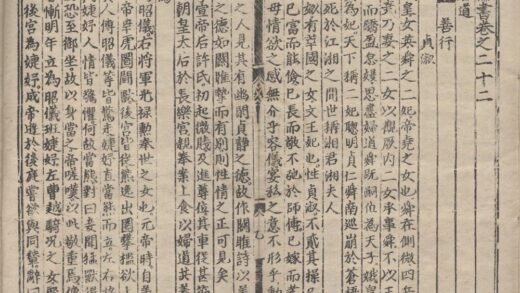 書卷之二十二
道
善行
貞淑
皇女英舜之二妃帝堯之女也舜在側微四岳
堯乃妻之二女以觀厥內二女承事舜不以
驕盈怠嫚思盡婦道舜既嗣位為天子娥皇
為妃天下稱二妃聰明貞仁舜南巡崩於蒼梧
死於江湘之間世稱湘君湘夫人
姒有莘國之女文王妃也性貞淑不貳其操
已富而能儉已長而敬不弛於師傅已嫁而孝
母情欲之感無介乎容儀宴私之意不形乎動
之人見其有幽閒貞靜之德故作關雎詩以美
之德如關雎摯而有別則性情之正可見矣
宣帝后許氏初起微賤及進尊位其車從甚節
朝皇太后於長樂宮親奉案上食以婦道共養
昭儀右將軍光祿勳奉世之女也元帝時自美
帝幸虎圈鬪獸後宮皆從熊逸出圈攀檻欲上
傅昭儀等皆驚走婕妤直當熊而立左右格
婕妤人情皆驚懼何故當熊對曰妾聞猛獸得
恐至御坐故以身當之帝嗟嘆以此敬重焉傅
慚明年立為昭儀班婕妤左曹越騎況之女賢
後宮為婕妤成帝遊於後庭嘗欲與同輦辭曰